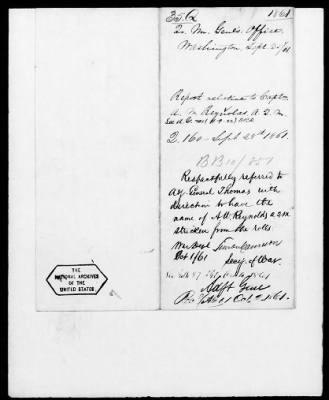 35. Q 1861
Qr. Mr. Genl's Office
Washington, Sept. 
Report relative to Capt.
A. W. Reynolds, A. Q. M.
Q. 160 - Sept. 28th 1861.
B B 10/851
Respectfully referred to
Adj. General Thomas with
direction to have the
name of A. W. Reynolds A. Q. M
stricken from the rolls.
War Dept Simon Cameron
Oct 1/61 Secy. of War.
Adjt Genl
Oct. 2. 1861.
THE
NATIONAL ARCHIVES
OF THE
UNITED STATES